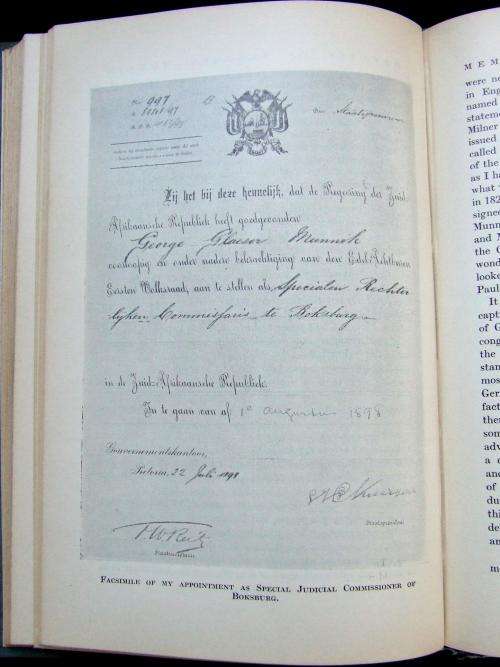 997
Zij het bij deze kennelijk, dat de Regeering der Zuid-
Afrikaansche Republiek heeft goedgevonden
George Glaeser Munnik
voorloopig en onder nadere bekrachtiging van den Edel Achtbaren
Eersten Volksraad, aan te stellen als Specialen Rechter
lyken Commissaris te Boksburg
in de Zuid-Afrikaansche Republiek.
In te gaan van af 1e Augustus 1898
Gouvernementskantoor,
Pretoria, 22 Juli 1898
F.W. Reitz
Staatssecretaris
Staatspresident
FACSIMILE OF MY APPOINTMENT AS SPECIAL JUDICIAL COMMISSIONER OF
BOKSBURG.
MEM
were no
in Eng
named
stateme
Milner
issued
called
of the
as I ha
what
in 182
signed
Munn
and M
the C
wond
looke
Paul
It
capti
of G
cong
the
stan
mos
Ger
fact
ther
som
adv
a c
and
of
du
thi
de
an
m